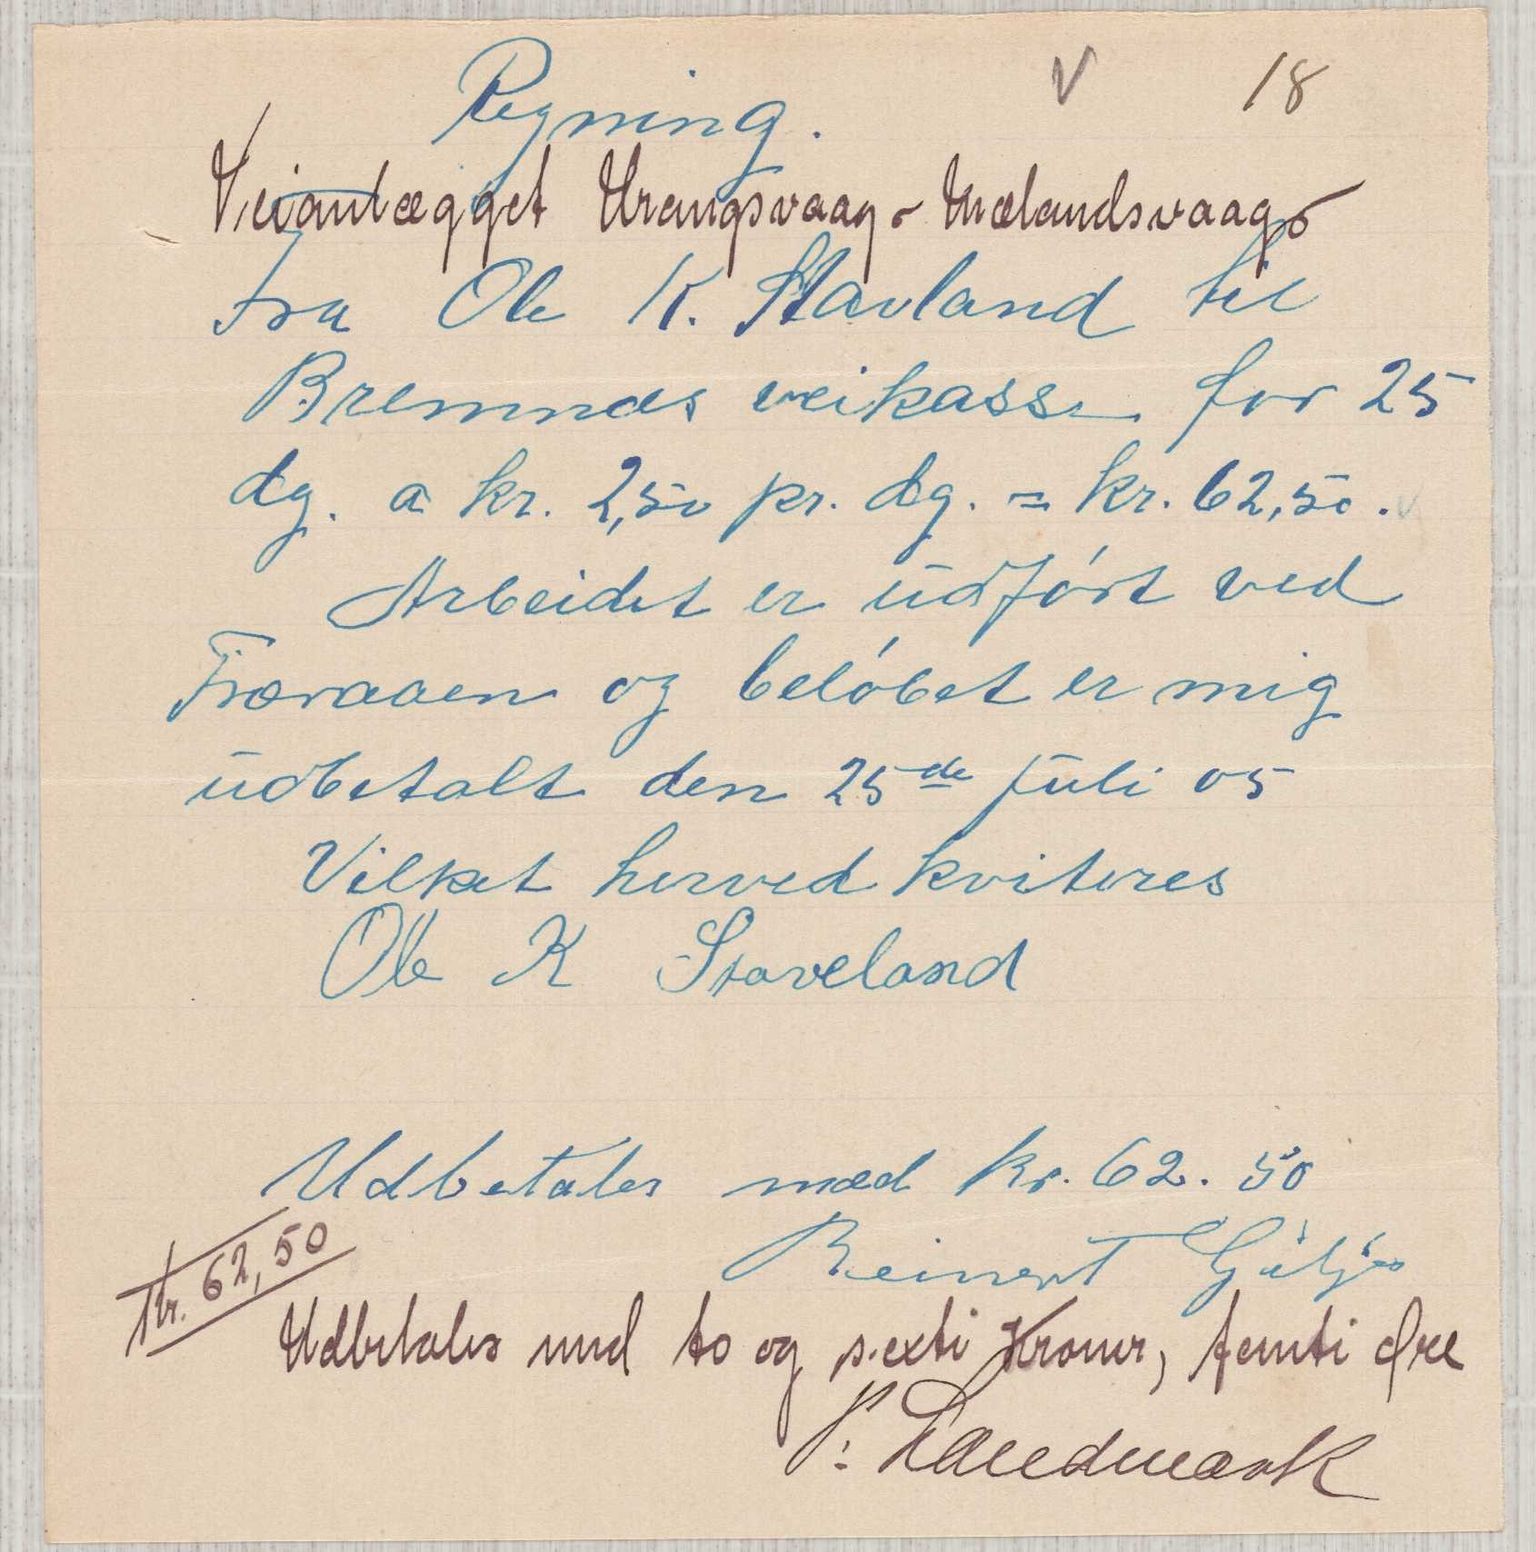 V 18
Regning.
Veianlægget Urangsvaag - Mælandsvaag
Fra Ole K. Stavland til
Bremnes veikasse for 25
dg. a kr. 2,50 pr. dg. = kr. 62,50.
Arbeidet er udført ved
og beløbet er mig
udbetalt den 25de Juli 05
Vilket herved kviteres
Ole K Staveland
Udbetales med kr. 62.50
Reinert Giljе
kr. 62,50
Udbetales med to og sexti Kroner, femti Øre
P. Landmark